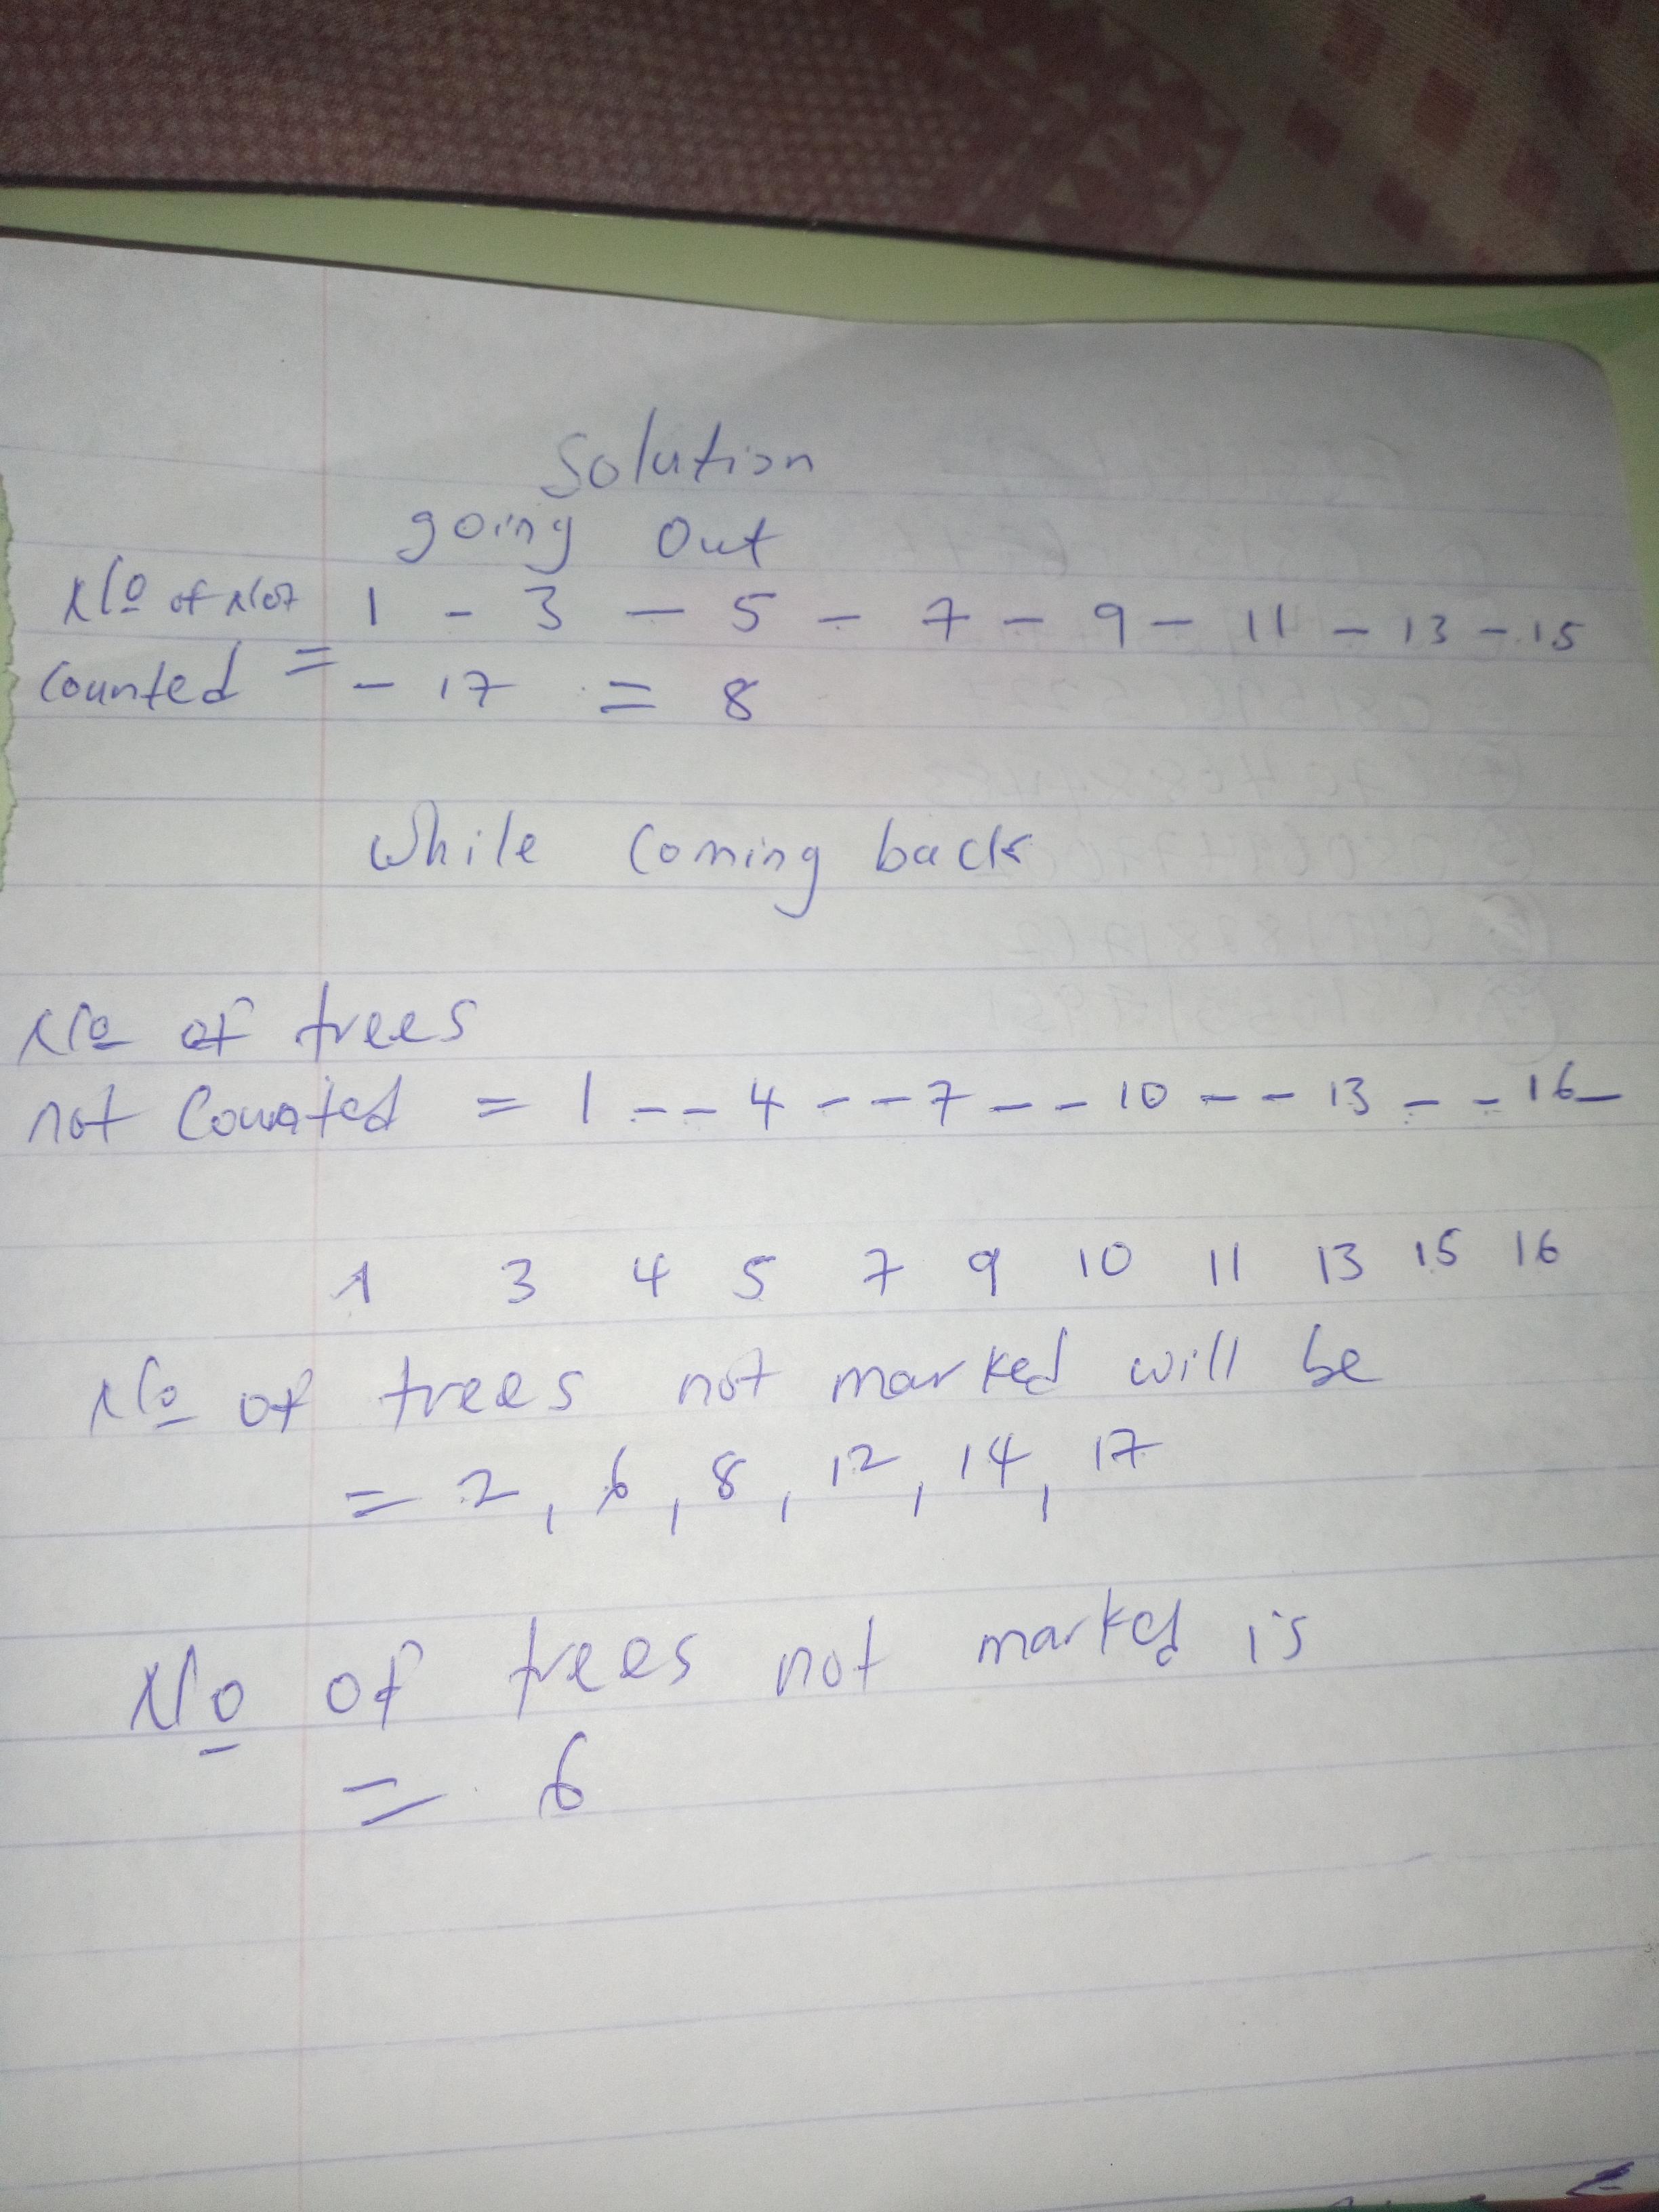 Solution
going out
No of Not 1 - 3 - 5 - 7 - 9 - 11 - 13 - 15
Counted = - 17 = 8
While Coming back
No of trees
not Counted = 1 - - 4 - - 7 - - 10 - - 13 - - 16 -
1 3 4 5 7 9 10 11 13 15 16
No of trees not marked will be
= 2, 6, 8, 12, 14, 17
No of trees not marked is
= 6